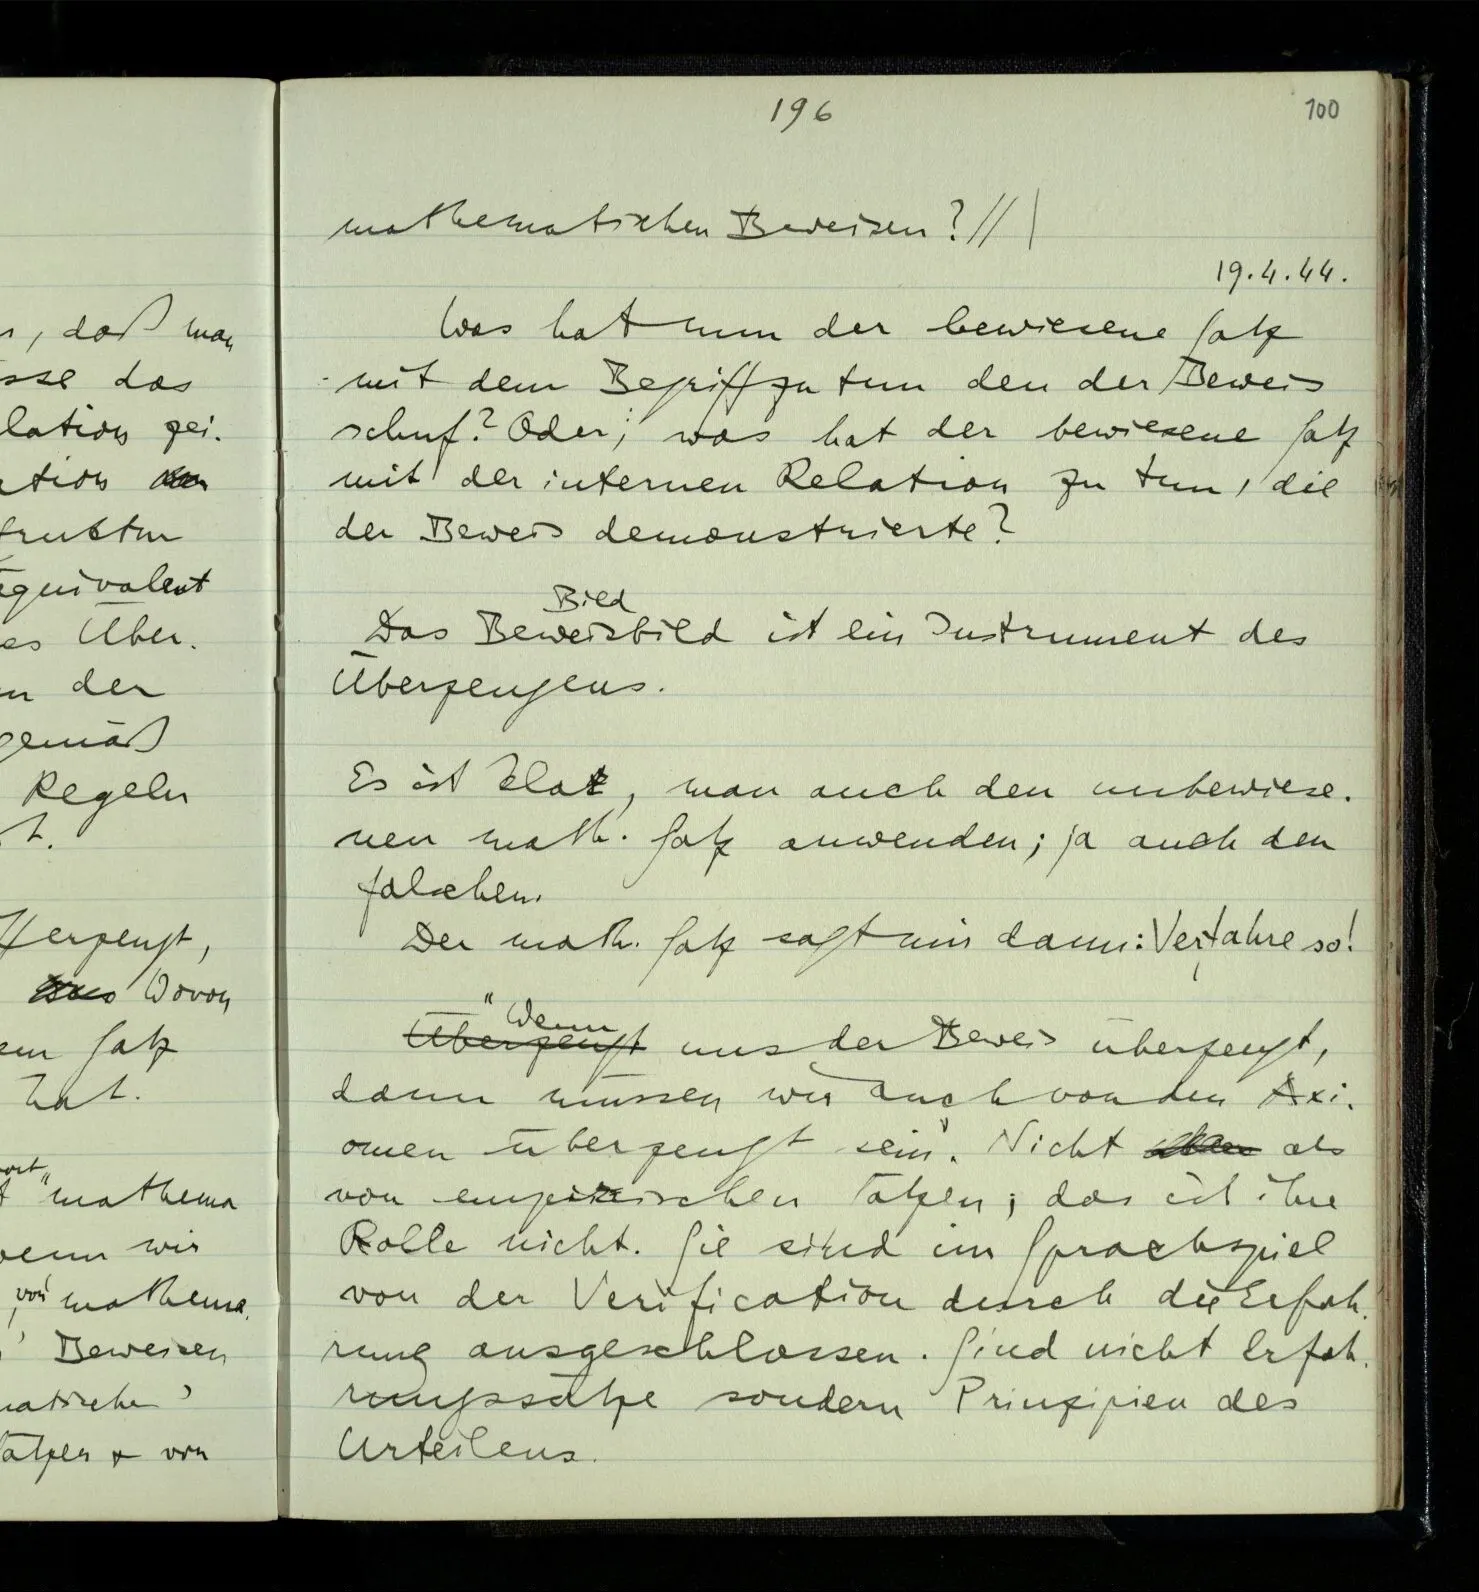 196
100
mathematischen Beweisen? // |
19.4.44.
Was hat nun der bewiesene Satz
mit dem Begriff zu tun den der Beweis
schuf? Oder; was hat der bewiesene Satz
mit der internen Relation zu tun, die
der Beweis demonstrierte?
Bild
Das Beweisbild ist ein Instrument des
Überzeugens.
Es ist klar, man auch den unbewiese-
nen math. Satz anwenden; ja auch den
falschen.
Der math. Satz sagt mir dann: Verfahre so!
"Wenn
Überzeugt uns der Beweis überzeugt,
dann müssen wir auch von den Axi-
omen überzeugt sein". Nicht als
von empirischen Sätzen; das ist ihre
Rolle nicht. Sie sind im Sprachspiel
von der Verification durch die Erfah-
rung ausgeschlossen. Sind nicht Erfah-
rungssätze sondern Prinzipien des
Urteilens.
, daß man
das
lation zei-
ation
truktur
equivalent
es Über-
der
gemäß
Regeln
t.
erzeugt,
Wovon
Satz
hat.
"mathema
wenn wir
von mathema-
Beweisen
matische
ätzen & von